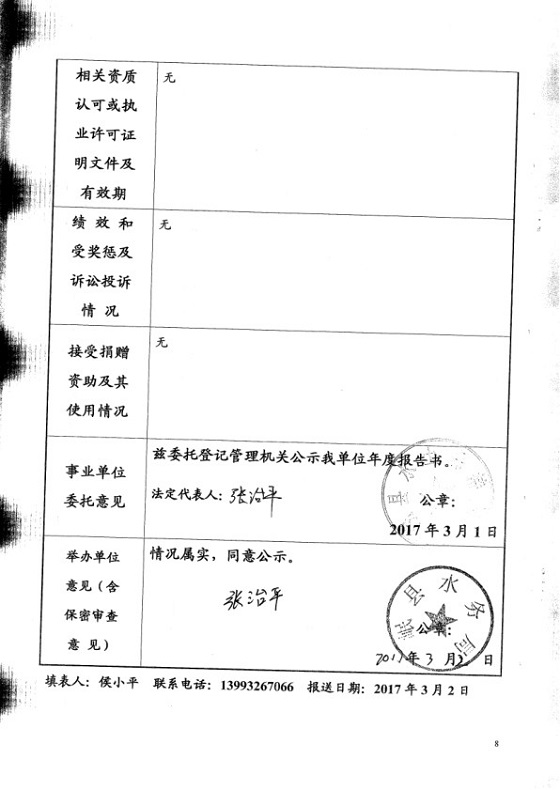 相关资质
认可或执
业许可证
明文件及
有效期
无
绩 效 和
受奖惩及
诉讼投诉
情 况
无
接受捐赠
资助及其
使用情况
无
事业单位
委托意见
兹委托登记管理机关公示我单位年度报告书。
法定代表人：张治平
公章：
2017 年 3 月 1 日
县水
举办单位
意见（含
保密审查
意 见）
情况属实，同意公示。
张治平
县水务局
公章：
2017年 3 月 日
填表人：侯小平 联系电话：13993267066 报送日期：2017 年 3 月 2 日
8